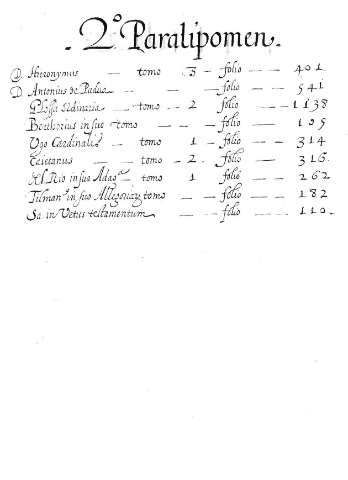 2º Paralipomen.
D. Hieronymus — tomo 3 — folio — — 401
D. Antonius de Padua — — folio — — 541
Glossa Ordinaria — tomo — 2 folio — — 1138
in suo tomo — — folio — — 105
Ugo Cardinalis — tomo 1 — folio — 314
Caietanus — tomo — 2 — folio — 316
Del Rio in suo Adag. — tomo 1 folio — 262
in suo tomo — — folio — 182
Sa in Vetus testamentum — — folio — — 110